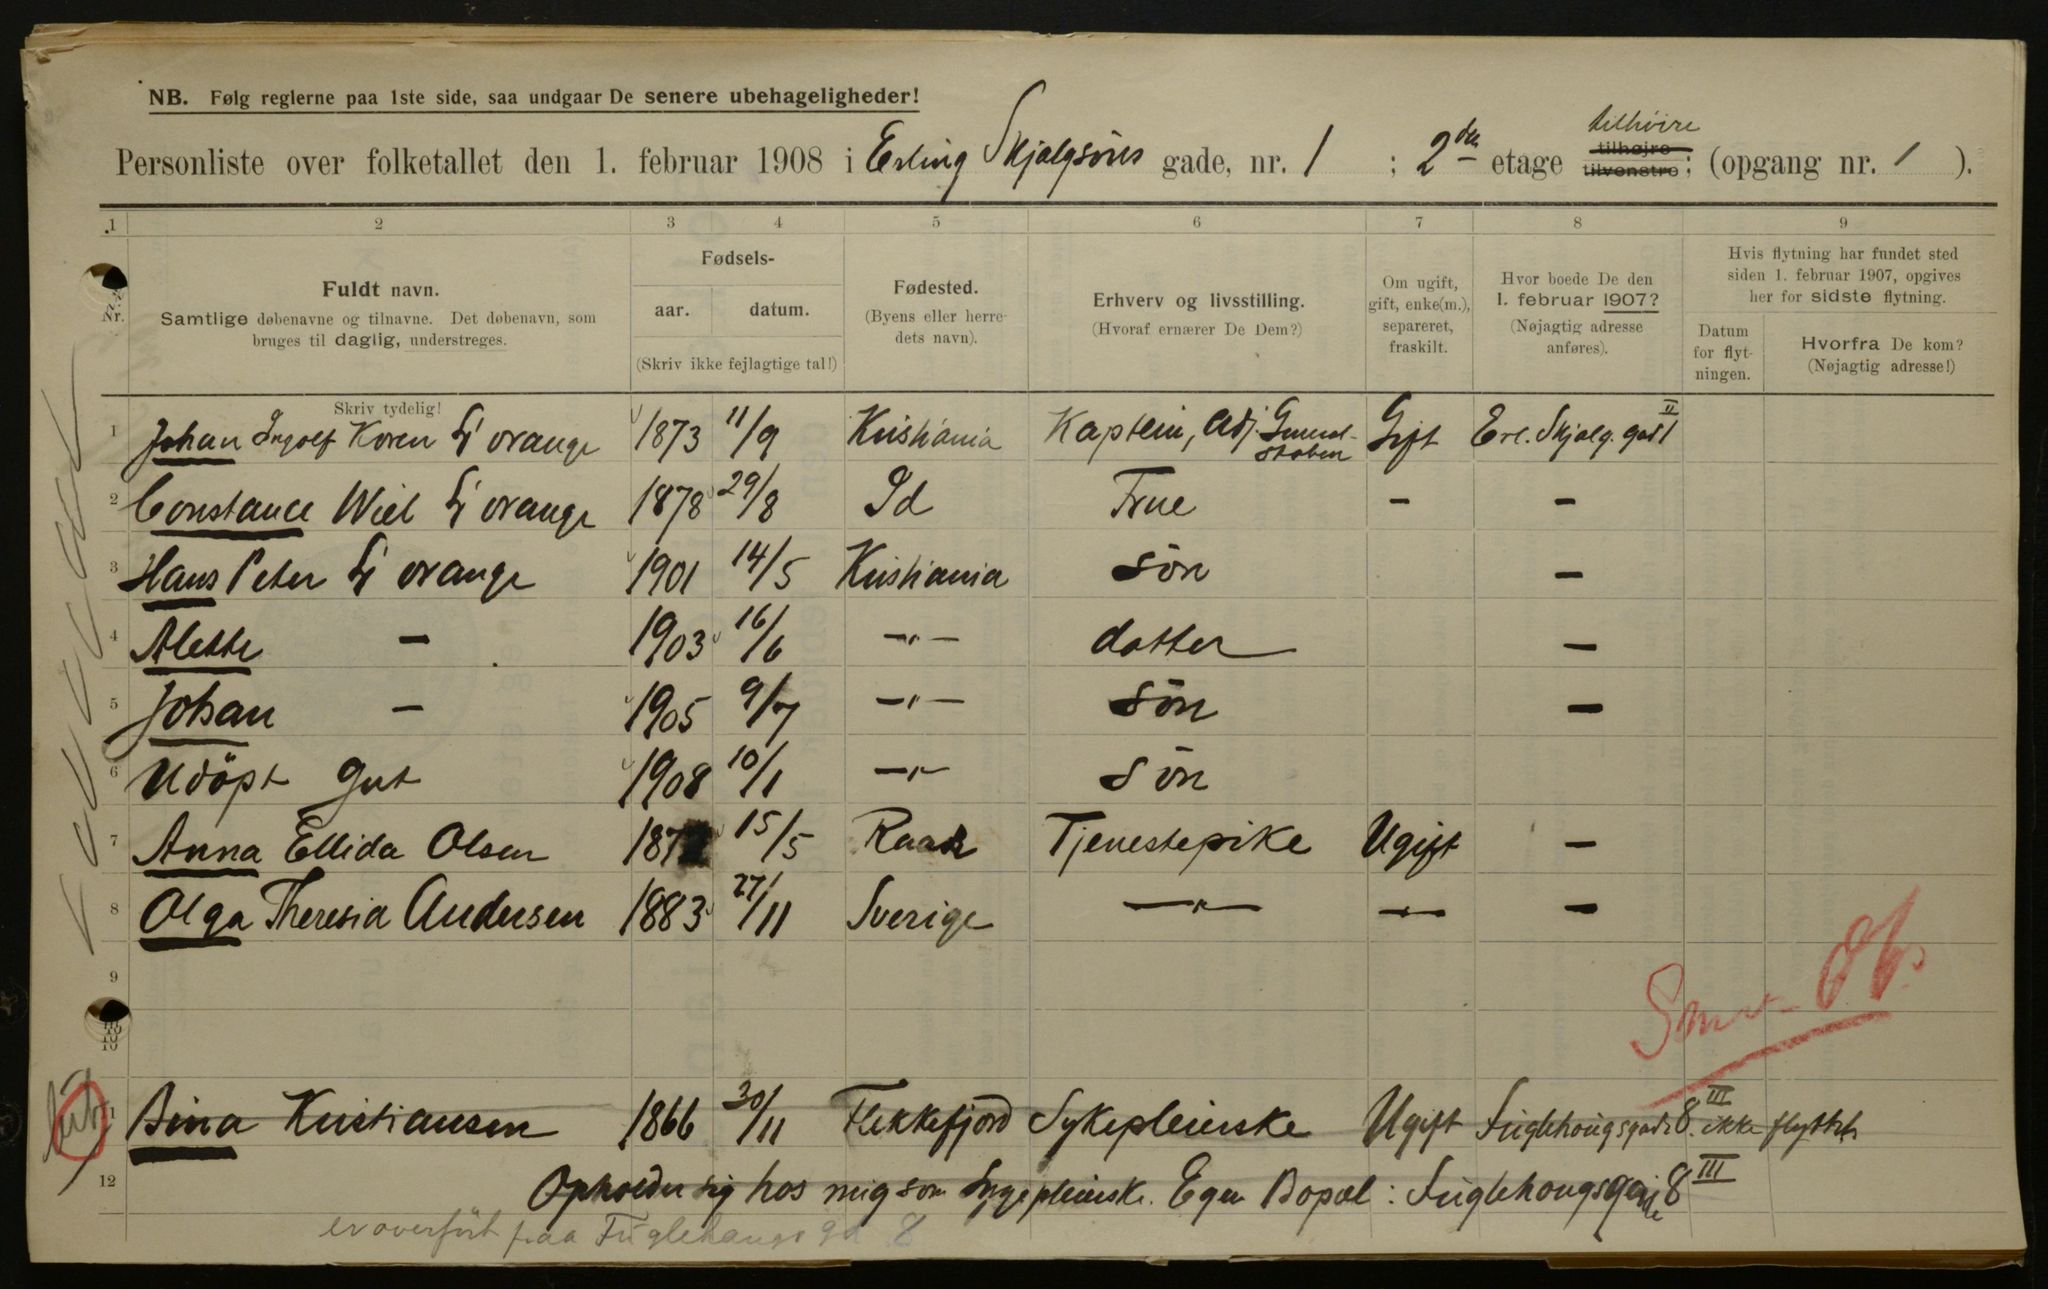 NB. Følg reglerne paa 1ste side, saa undgaar De senere ubehageligheder!
tilhöire
Personliste over folketallet den 1. februar 1908 i Erling Skjalgsöns gade, nr. 1 ; 2den etage tilhøjre tilvenstre; (opgang nr. 1 ).
1 2 3 4 5 6 7 8 9
Nr.
Fuldt navn.
Samtlige døbenavne og tilnavne. Det døbenavn, som
bruges til daglig, understreges.
Skriv tydelig!
Fødsels-
aar. datum.
(Skriv ikke fejlagtige tal!)
Fødested.
(Byens eller herre-
dets navn).
Erhverv og livsstilling.
(Hvoraf ernærer De Dem?)
Om ugift,
gift, enke(m.),
separeret,
fraskilt.
Hvor boede De den
1. februar 1907?
(Nøjagtig adresse
anføres).
Hvis flytning har fundet sted
siden 1. februar 1907, opgives
her for sidste flytning.
Datum
for flyt-
ningen.
Hvorfra De kom?
(Nøjagtig adresse!)
1 Johan Ingolf Koren L'orange 1873 11/9 Kristiania Kaptein, Adj. General-staben Gift Erl. Skjalg. gad 1 II
2 Constance Wiel L'orange 1878 29/8 Id Frue - -
3 Hans Peter L'orange 1901 14/5 Kristiania sön -
4 Alette - 1903 16/6 -"- datter -
5 Johan - 1905 9/7 -"- sön -
6 Udöpt Gut 1908 10/1 -"- sön
7 Anna Ellida Olsen 187 15/5 Raade Tjenestepike Ugift -
8 Olga Theresia Andersen 1883 27/11 Sverige -"- -"- -
9
10
11 Kristiansen 1866 30/11 Flekkefjord Sykepleierske Ugift Fuglehougsgade 8 III ikke flyttet
12 Opholder sig hos mig som Sygepleierske. Egen Bopæl: Fuglehougsgade 8 III
er overfört paa Fuglehaugs gd 8